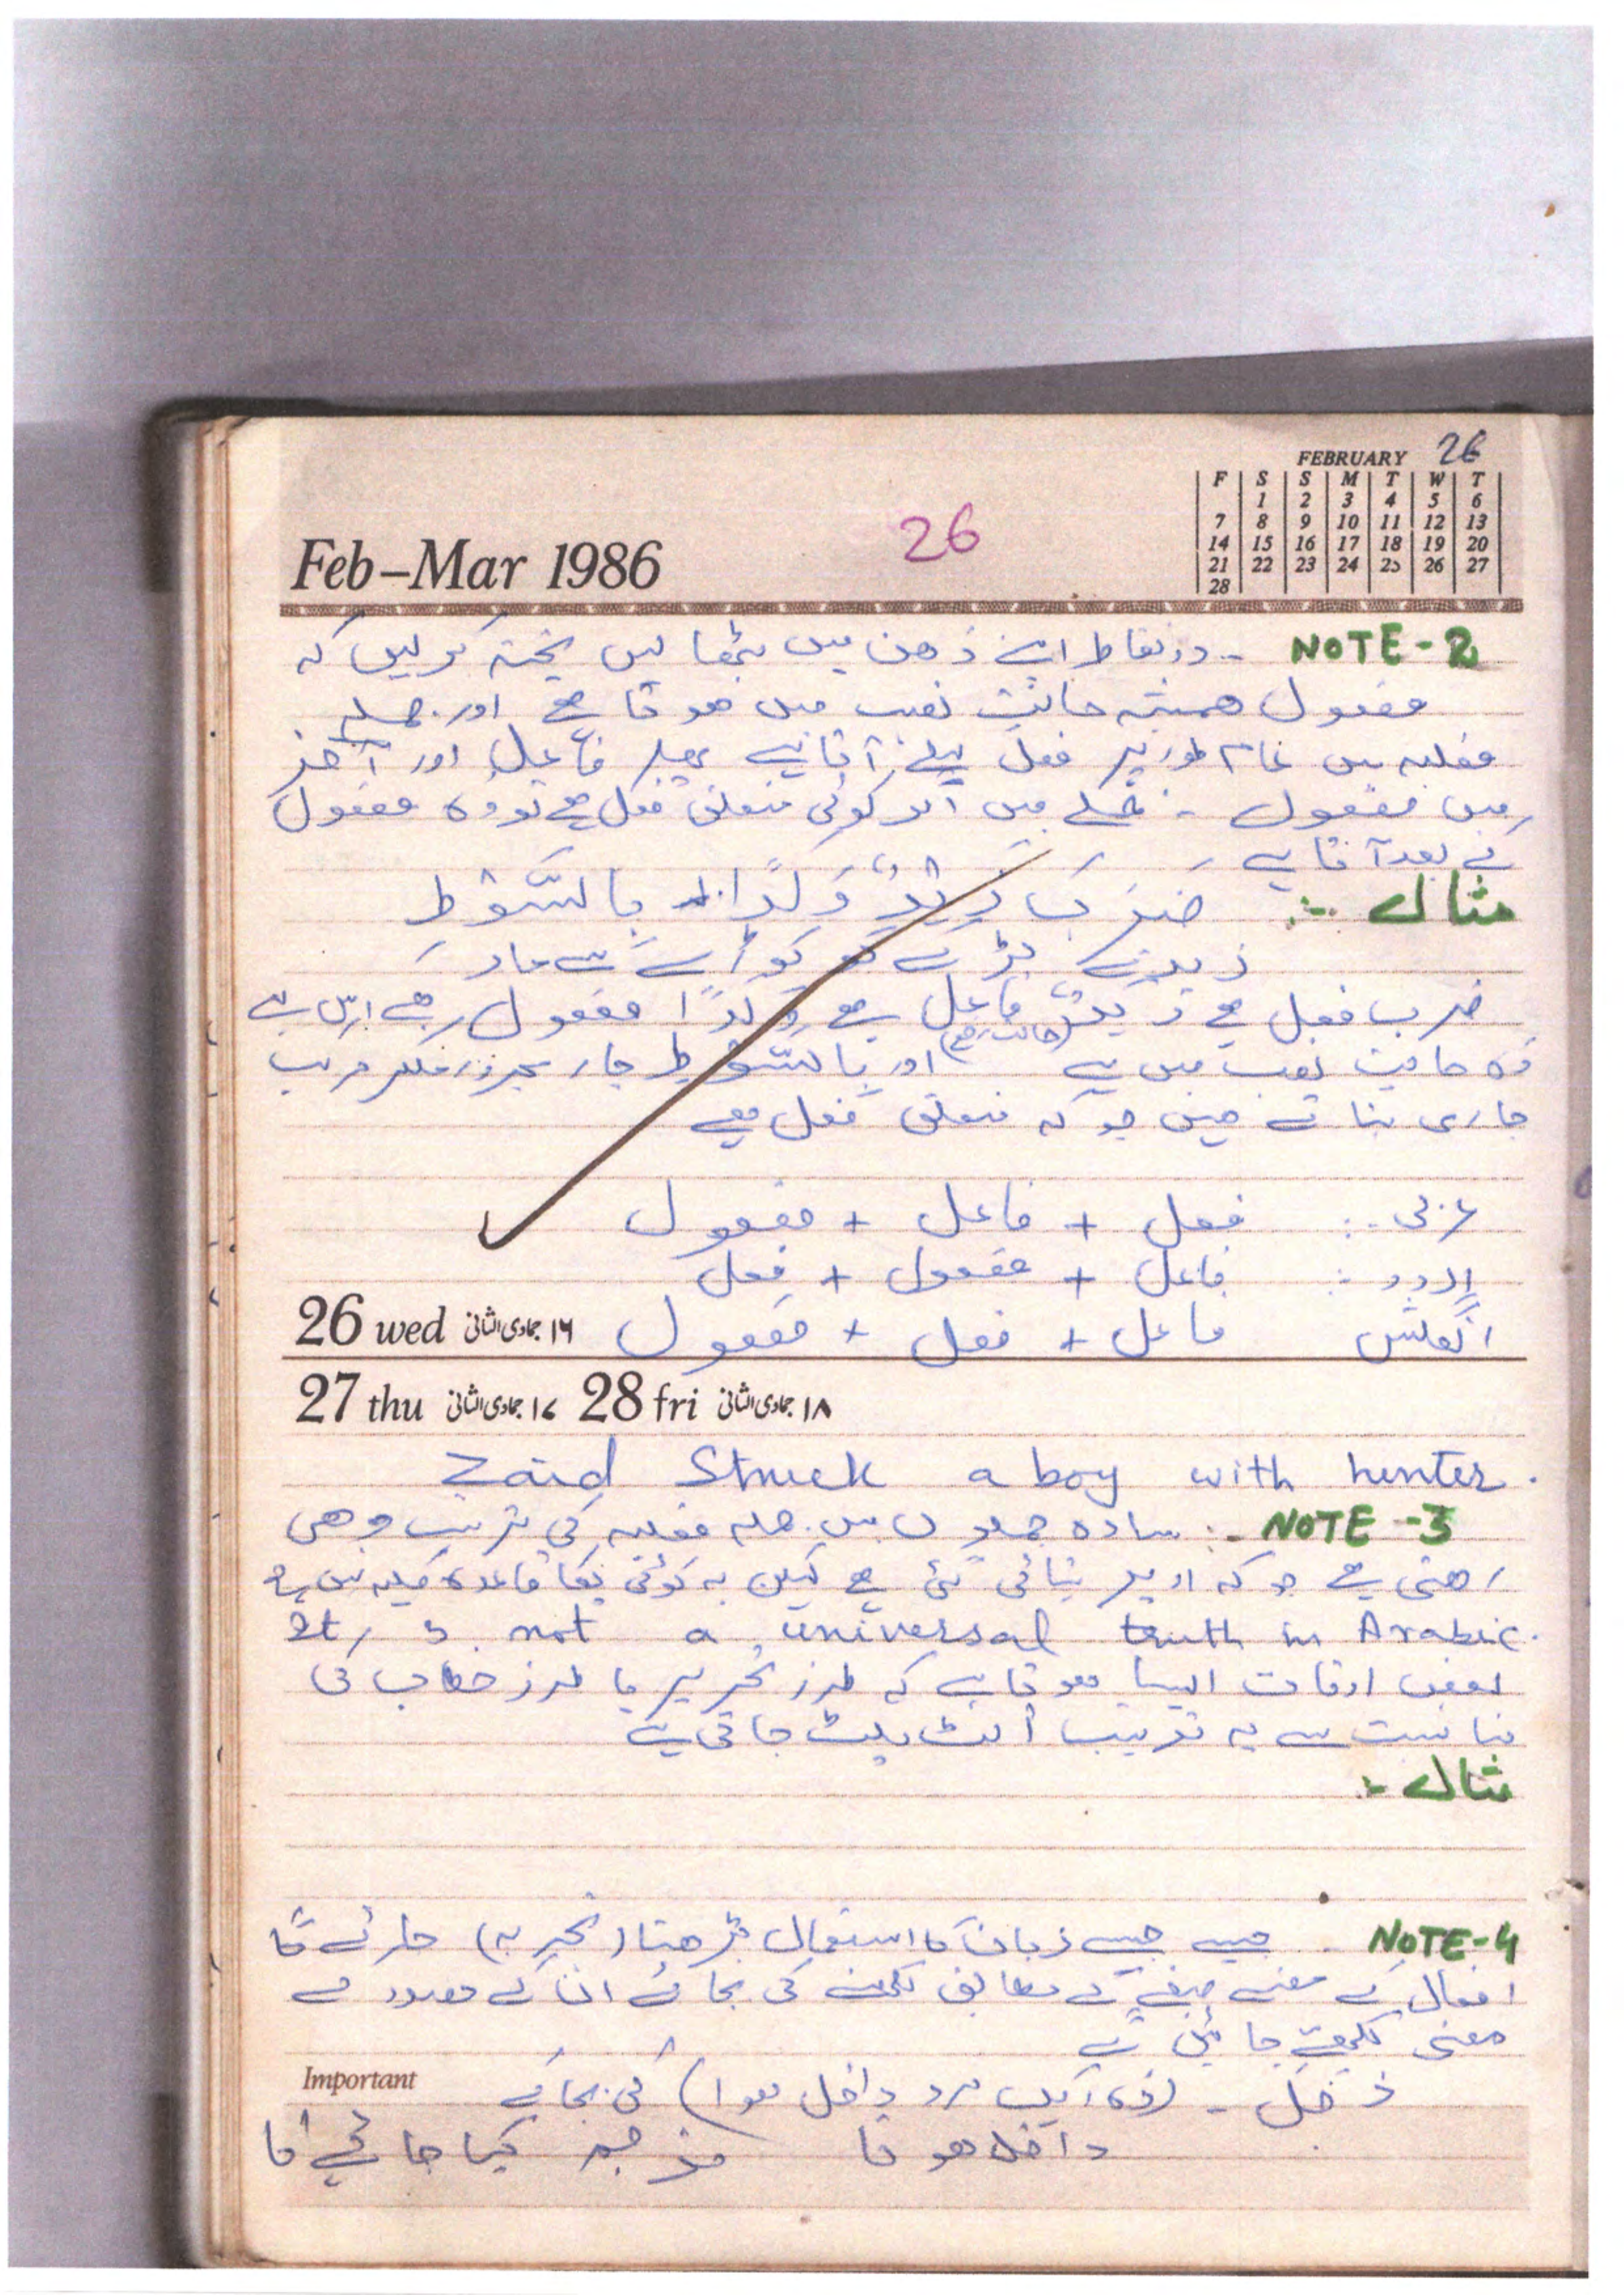 FEBRUARY 26
F S S M T W T
1 2 3 4 5 6
7 8 9 10 11 12 13
14 15 16 17 18 19 20
21 22 23 24 25 26 27
28
Feb–Mar 1986
26
NOTE-2 - دو نقاط اپنے ذھن میں بٹھا لیں پختہ کر لیں کہ
مفعول ھمیشہ حالتِ نصب میں ھوتا ھے اور جملہ
فعلیہ میں عام طور پر فعل پہلے آتا ہے پھر فاعل اور آخر
میں مفعول - جملے میں اگر کوئی متعلق فعل ھے تو وہ مفعول
کے بعد آتا ہے
مثال :- ضَرَبَ زَیْدٌ وَلَدًا بِالسَّوْطِ
زید نے لڑکے کو کوڑے سے مارا
ضرب فعل ھے زیدٌ فاعل ہے (حالت رفع) ولدًا مفعول ھے اس لئے
وہ حالت نصب میں ہے اور بالسّوط جار مجرور ملکر مرکب
جاری بناتے ھیں جو کہ متعلق فعل ھے
عربی :- فعل + فاعل + مفعول
اردو :- فاعل + مفعول + فعل
انگلش فاعل + فعل + مفعول
26 wed ۱۶ جمادی الثانی
27 thu ۱۷ جمادی الثانی 28 fri ۱۸ جمادی الثانی
Zaid Struck a boy with hunter.
NOTE-3 :- سادہ جملوں میں جملہ فعلیہ کی ترتیب وھی
رھتی ہے جو کہ اوپر بتائی گئی ھے لیکن یہ کوئی پکا قاعدہ کلیہ نہیں ہے
It is not a universal truth in Arabic.
بعض اوقات ایسا ھوتا ہے کہ طرز تحریر یا طرز خطاب کی
مناسبت سے یہ ترتیب اُلٹ پلٹ جاتی ہے
مثال :-
NOTE-4 - جیسے جیسے زبان کا استعمال بڑھتا (تجربہ) جائے گا
افعال کے معنے صیغے کے مطابق لکھنے کی بجائے ان کے مصدر کے
معنی لکھے جائیں گے
Important
دَخَلَ - (وہ ایک مرد داخل ھوا) کی بجائے
داخل ھونا ترجمہ کیا جائے گا